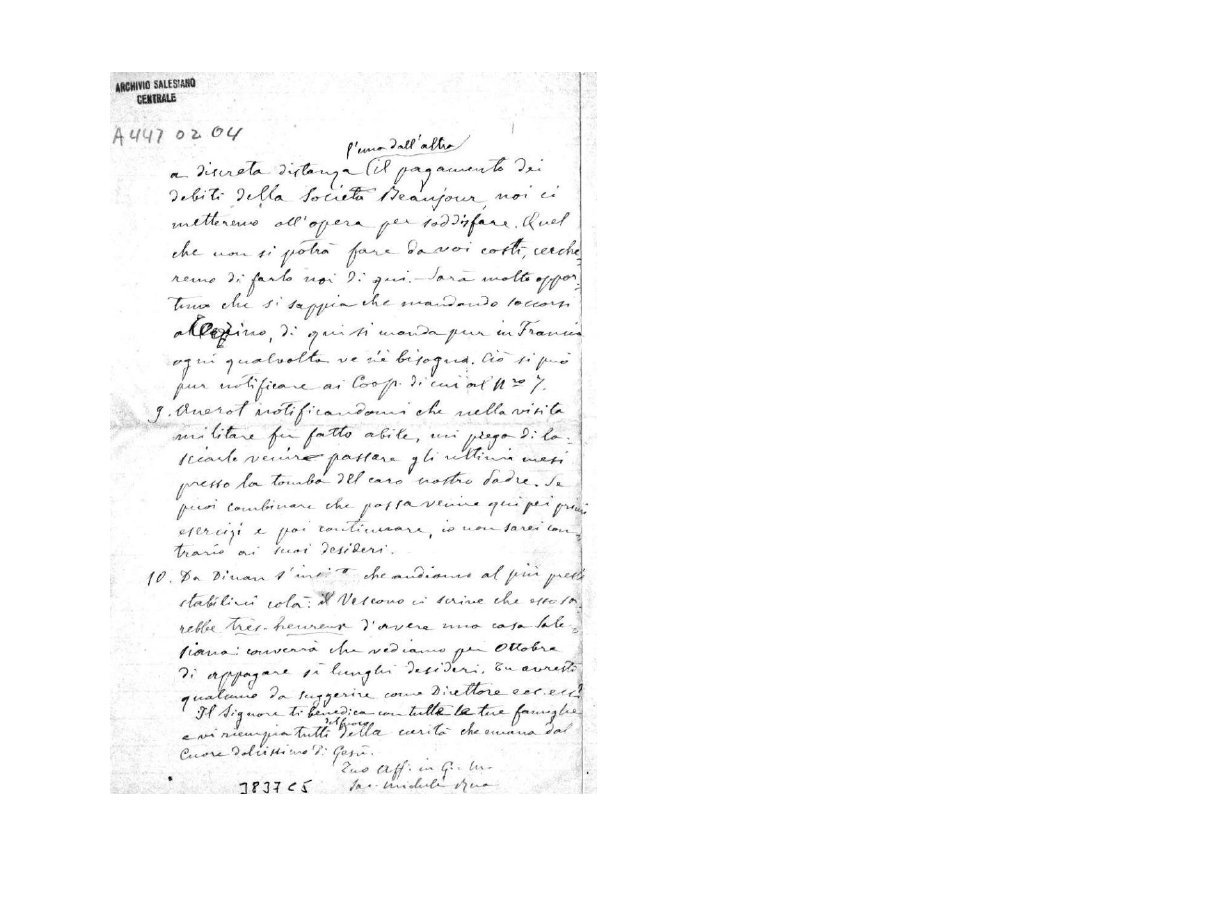 ARCHIVIO SALESIANO
CENTRALE
A447 02 04
l'uno dall'altro
a discreta distanza (il pagamento dei
debiti della Società Beaujour, noi ci
metteremo all'opera per soddisfare. Quel
che non si potrà fare da voi costì, cerche
remo di farlo noi di qui. - Sarà molto oppor-
tuno che si sappia che mandando soccorsi
di qui si manda pur in Francia
ogni qualvolta ve n'è bisogno. Ciò si può
pur notificare ai Coop. di cui al Nro 7.
9. notificandomi che nella visita
militare fu fatto abile, mi prega di la-
sciarlo venire passare gli ultimi mesi
presso la tomba del caro nostro Padre. Se
puoi combinare che possa venire qui pei primi
esercizi e poi continuare, io non sarei con-
trario ai suoi desideri.
10. Da Dinan che andiamo al più presto
stabilirci colà: il Vescovo ci scrive che esso sa-
rebbe très-heureux d'avere una casa Sale-
siana: converrà che vediamo per Ottobre
di appagare sì lunghi desideri. Tu avresti
qualcuno da suggerire come Direttore ecc. ecc?
Il Signore ti benedica con tutte le tue famiglie
e vi riempia tutti del fuoco della carità che emana dal
Cuore dolcissimo di Gesù.
Tuo aff. in G. M.
Sac. Michele Rua
3837 C5